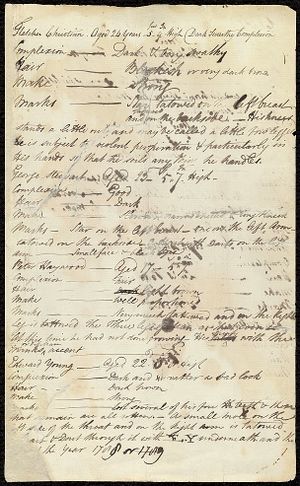 Fletcher Christian. Aged 24 Years 5.9 High Dark Swarthy Complexion
Complexion — Dark & very swarthy
Hair — Blackish or very dark brown
Make — Strong
Marks — Star tatowed on the left breast
and on the backside — His knees
stands a little out and may be called a little bow legged
He is subject to violent perspiration & particularly in
his hands so that he soils any thing he handles
George Stewart — Aged 23 — 5.7 High —
Complexion — Good
Hair — Dark
Make
Marks — Star on the left breast — one on the left Arm
tatowed on the backside —
Peter Haywood — Aged 17 — 5.7
Complexion — Fair
Hair — light brown
Make — Well proportioned
Marks — Very much tatowed and on the right
Leg is tattowed the Three Legs of Man
this time he had not done growing
Manks accent
Edward Young — Aged 22 — High
Complexion — Dark and rather a bad look
Hair — Dark brown
Make — Strong
Marks — Lost several of his fore teeth & those
that remain are all — A small mole on the
side of the throat and on the right arm is tatowed
a & Dart through it with E. Y underneath and
the Year 1788 or 1789